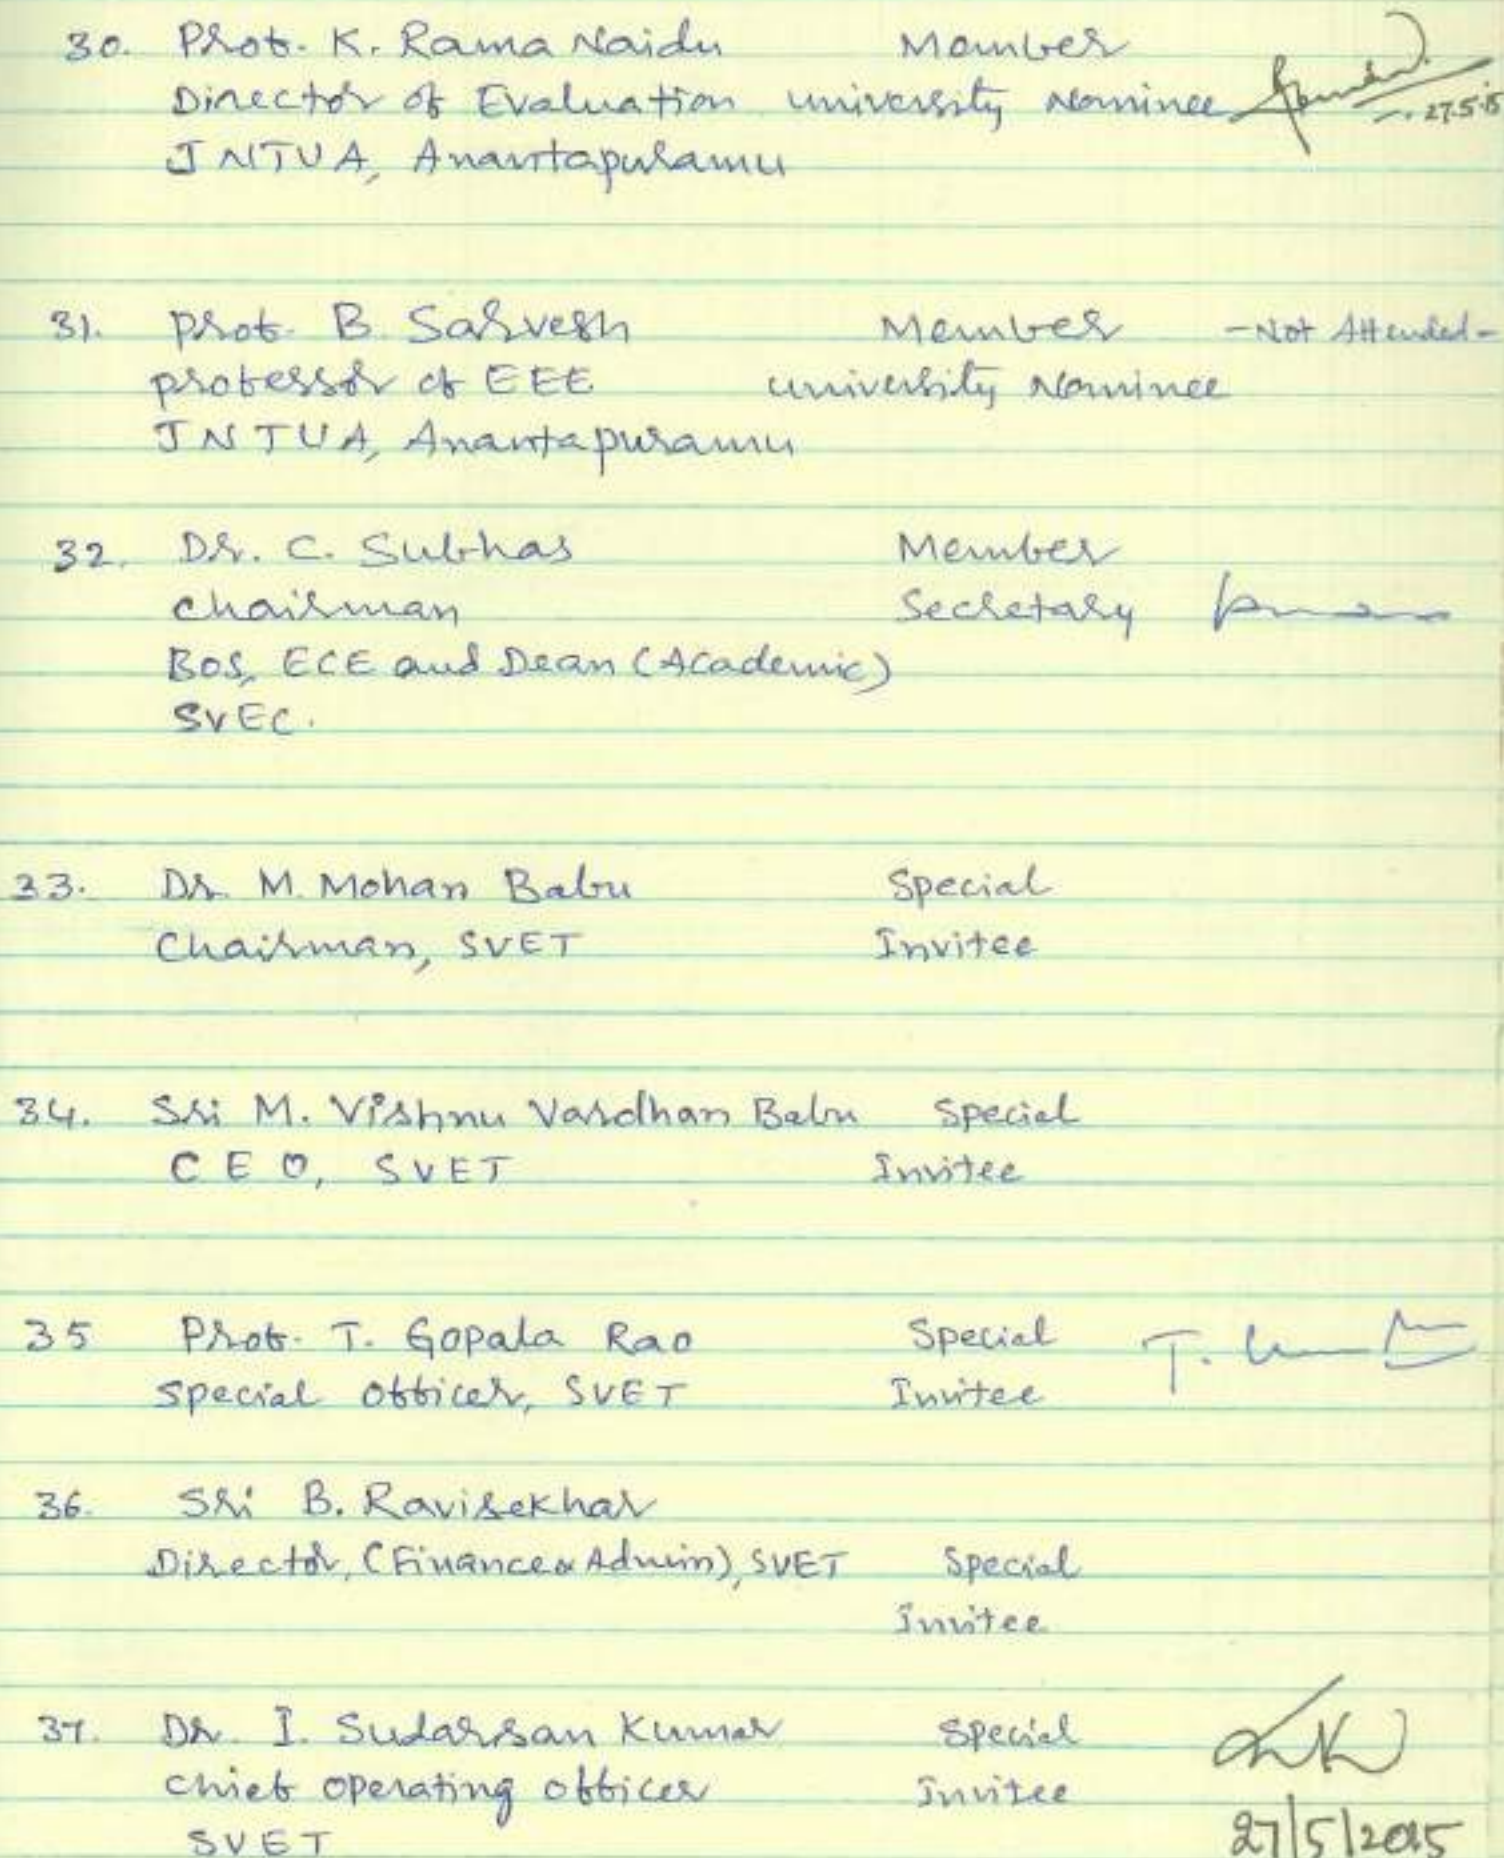 30. Prof. K. Rama Naidu Member
Director of Evaluation university Nominee
27.5.15
JNTUA, Anantapuramu
31. Prof. B. Sarvesh Member -Not Attended-
professor of EEE university Nominee
JNTUA, Anantapuramu
32. Dr. C. Subhas Member
Chairman Secretary
BOS, ECE and Dean (Academic)
SVEC.
33. Dr. M. Mohan Babu Special
Chairman, SVET Invitee
34. Sri M. Vishnu Vardhan Babu Special
CEO, SVET Invitee
35 Prof. T. Gopala Rao Special T.
Special Officer, SVET Invitee
36. Sri B. Ravisekhar
Director, (Finance & Admin), SVET Special
Invitee
37. Dr. I. Sudarsan Kumar Special
Chief Operating Officer Invitee
SVET 27/5/2015